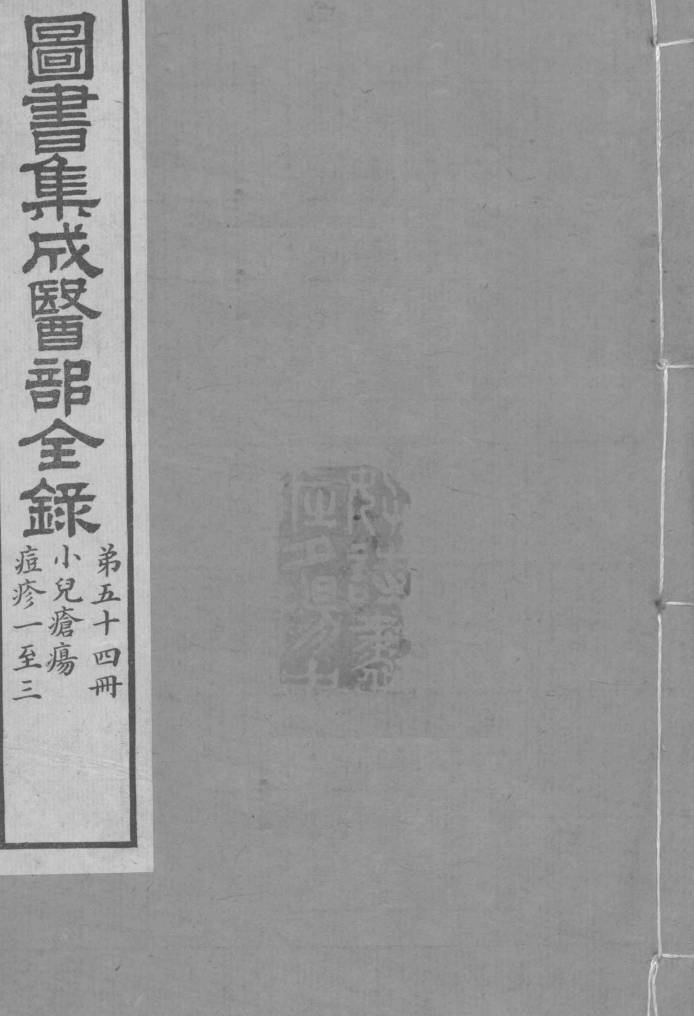 圖書集成醫部全錄
弟五十四冊
小兒瘡瘍
痘疹一至三